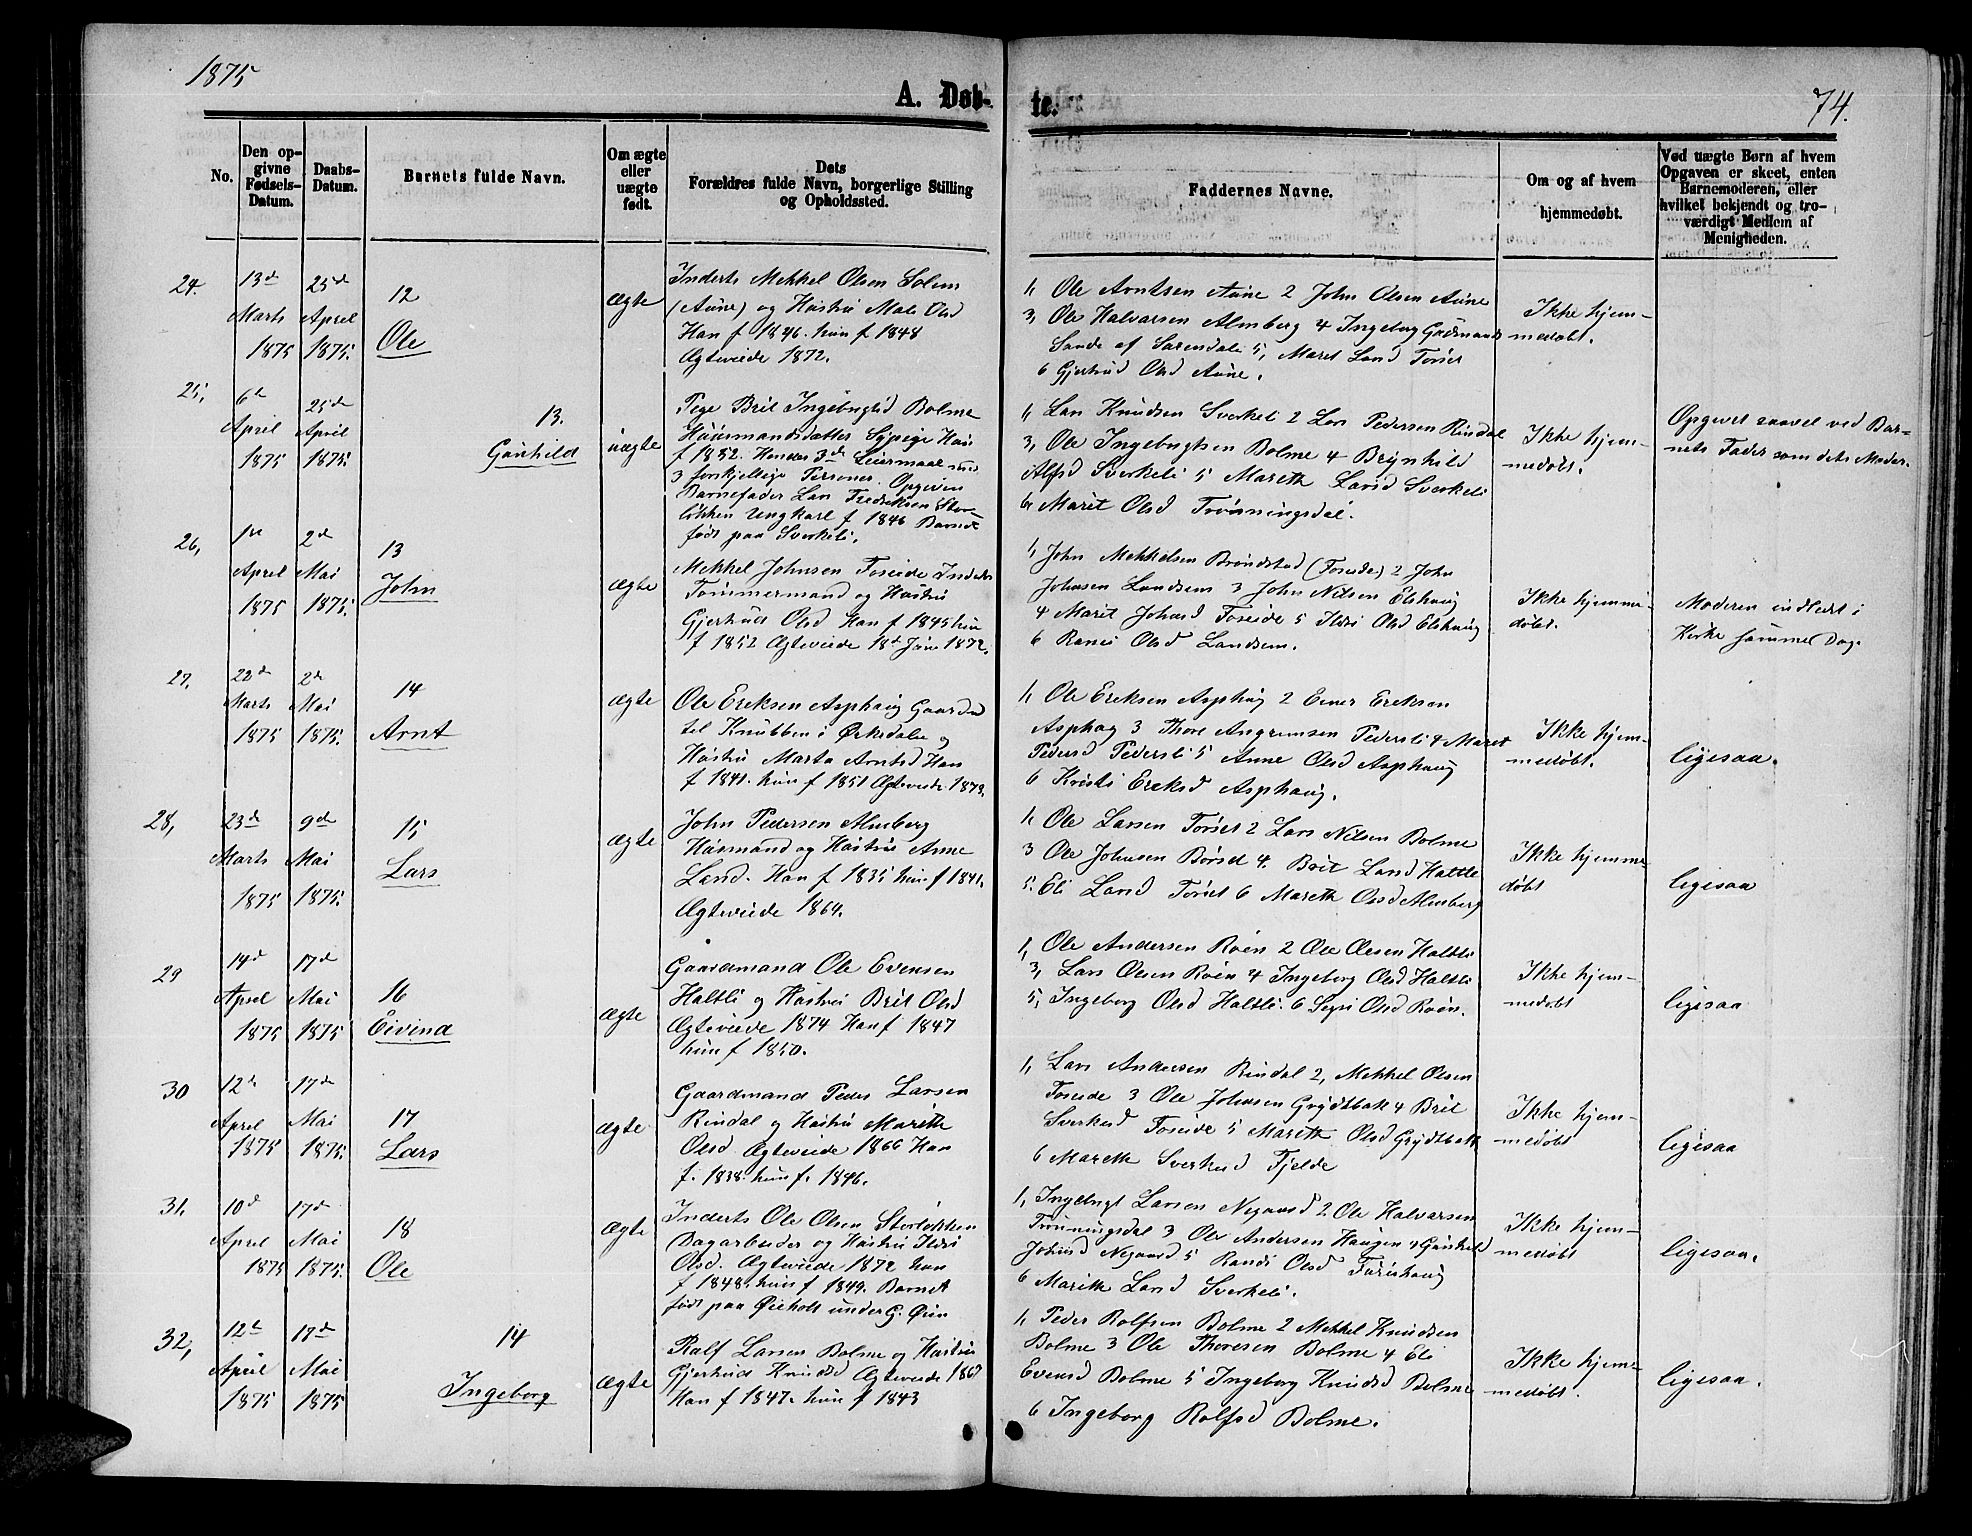 1875
A. Døb-
te.
74.
No.
Den op-
givne
Fødsels-
Datum.
Daabs-
Datum.
Barnets fulde Navn.
Om ægte
eller
uægte
født.
Dets
Forældres fulde Navn, borgerlige Stilling
og Opholdssted.
Faddernes Navne.
Om og af hvem
hjemmedøbt.
Ved uægte Børn af hvem
Opgaven er skeet, enten
Barnemoderen, eller
hvilket bekjendt og tro-
værdigt Medlem af
Menigheden.
24.
13d
Marts
1875
25d
Aprel
1875.
12
Ole
ægte
Inderts Mekkel Olsen Solem
(Aune) og Hustru Mali Olsd
Han f 1846. hun f 1848
Ægteviede 1872.
1, Ole Arntsen Aune 2 John Olsen Aune
3, Ole Halvarsen Almberg 4 Ingeborg Gudmands
Sande af Surendale 5, Maret Larsd Torset
6 Gjertrud Olsd Aune.
Ikke hjem-
medøbt.
25,
6te
April
1875
25de
April
1875.
13.
Gunhild
uægte
Pege Brit Ingebrigtsd Bolme
Huusmandsdatter Sypige Hun
f 1852. Hendes 3de Leiermaal med
3 forskjellige Personer. Opgiven
Barnefader Lars Fredriksen Stor-
løkken Ungkarl f 1846 Barnet
født paa Sverkeli.
1, Lars Knudsen Sverkeli 2 Lars Pedersen Rindal
3, Ole Ingebrigtsen Bolme 4 Brynhild
Alfsd Sverkeli 5 Marith Larsd Sverkeli
6, Marit Olsd Trønningsdal.
Ikke hjem-
medøbt.
Opgivet saavel ved Bar-
nets Fader som dets Moder.
26,
1ste
Aprel
1875
2d
Mai
1875.
13
John
ægte
Mekkel Johnsen Foseide Inderts
Tømmermand og Hustru
Gjertrud Olsd Han f 1845 hun
f 1852 Ægteviede 18d Juni 1872.
1, John Mekkelsen Brøndstad (Foseide) 2 John
Johnsen Landsem 3 John Nilsen Elshaug
4 Marit Johnsd Foseide 5 Ildri Olsd Elshaug
6 Ranei Olsd Landsem.
Ikke hjemme-
døbt.
Moderen indledet i
Kirke samme Dag.
27.
22d
Marts
1875
2d
Mai
1875.
14
Arnt
ægte
Ole Eriksen Asphaug Gaardmd
til Knubben i Ørkedalen og
Hustru Marta Arntsd Han
f 1841. hun f 1851 Ægteviede 1873.
1, Ole Eriksen Asphaug 2 Einer Eriksen
Asphaug 3 Thore Angrimsen Pedersli 4 Maret
Pedersd Pedersli 5 Anne Olsd Asphaug
6 Kristi Eriksd Asphaug.
Ikke hjem-
medøbt.
ligesaa.
28,
23d
Marts
1875
9d
Mai
1875.
15
Lars
ægte
John Pedersen Almberg
Husmand og Hustru Anne
Larsd. Han f 1835 hun f 1841.
Ægteviede 1864.
1, Ole Larsen Torset 2 Lars Nilsen Bolme
3 Ole Johnsen Børset 4. Brit Larsd Haltli
5. Eli Larsd Torset 6 Marith Olsd Almberg
Ikke hjemme-
døbt
ligesaa
29
14d
Aprel
1875
17d
Mai
1875
16
Eivind
ægte
Gaardmand Ole Evensen
Haltli og Hustru Brit Olsd
Ægteviede 1874 Han f 1847
hun f 1850.
1, Ole Andersen Røen 2 Ole Olsen Haltli
3, Lars Olsen Røen 4 Ingeborg Olsd Haltli
5, Ingeborg Olsd Haltli. 6 Segri Olsd Røen.
Ikke hjem-
medøbt
ligesaa
30
12d
Aprel
1875
17d
Mai
1875.
17
Lars
ægte
Gaardmand Peder Larsen
Rindal og Hustru Marith
Olsd Ægteviede 1866 Han
f. 1838. hun f. 1846.
1, Lars Andersen Rindal 2, Mekkel Olsen
Foseide 3 Ole Johnsen Grytbak 4 Brit
Sverkesd Foseide 5 Marith Olsd Grytbakk
6 Marith Sverkesd Fjelde
Ikke hjem-
medøbt
ligesaa
31,
10d
Aprel
1875
17d
Mai
1875.
18
Ole
ægte
Inderts Ole Olsen Storløkken
Dagarbeider og Hustru Ildri
Olsd. Ægteviede 1872 han
f 1848. hun f 1849. Barnet
født paa Øieholt under G. Øien
1, Ingebrigt Larsen Negaard 2 Ole Halvarsen
Trønningsdal 3 Ole Andersen Haugen 4 Gunhild
Johnsd Negaard 5 Randi Olsd Furuhaug
6 Marith Larsd Sverkeli.
Ikke hjem-
medøbt
ligesaa.
32,
12te
April
1875
17de
Mai
1875
14
Ingeborg
ægte
Rolf Larsen Bolme og Hustru
Gjertrud Knudsd Ægteviede 1867
Han f 1847. hun f 1843
1, Peder Rolfsen Bolme 2 Mekkel Knudsen
Bolme 3 Ole Thoresen Bolme 4 Eli
Evensd Bolme 5 Ingeborg Knudsd Bolme
6 Ingeborg Rolfsd Bolme.
Ikke hjem-
medøbt.
ligesaa.